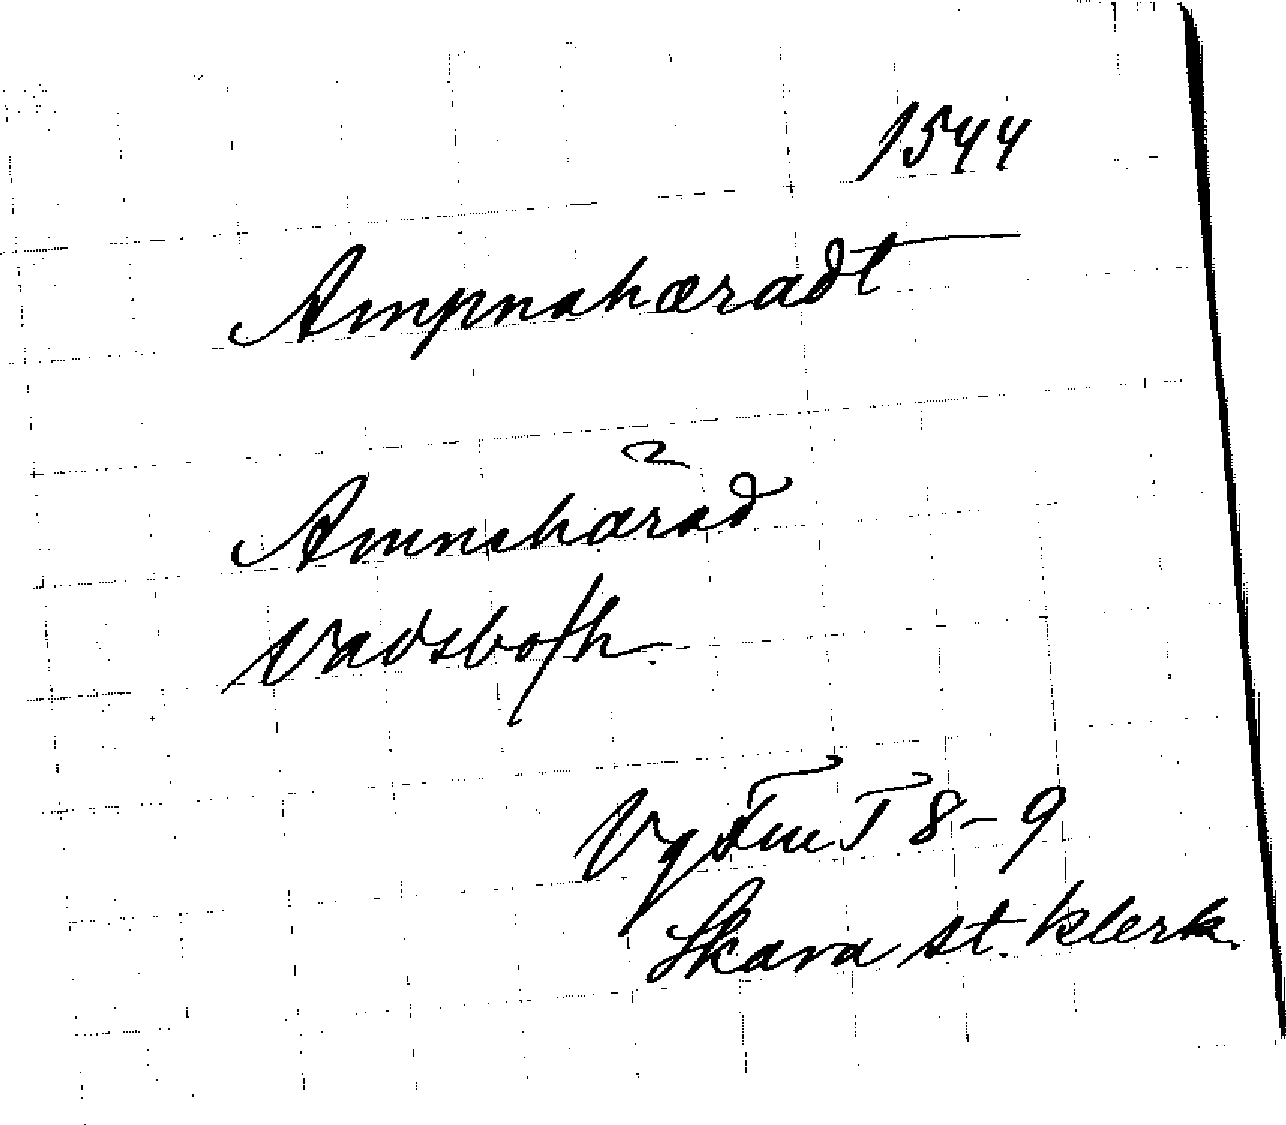 1544
Ampnahæradt
Amnehärad
Vadsbo h.
Vg Fme T 8-9
Skara st. klerk.